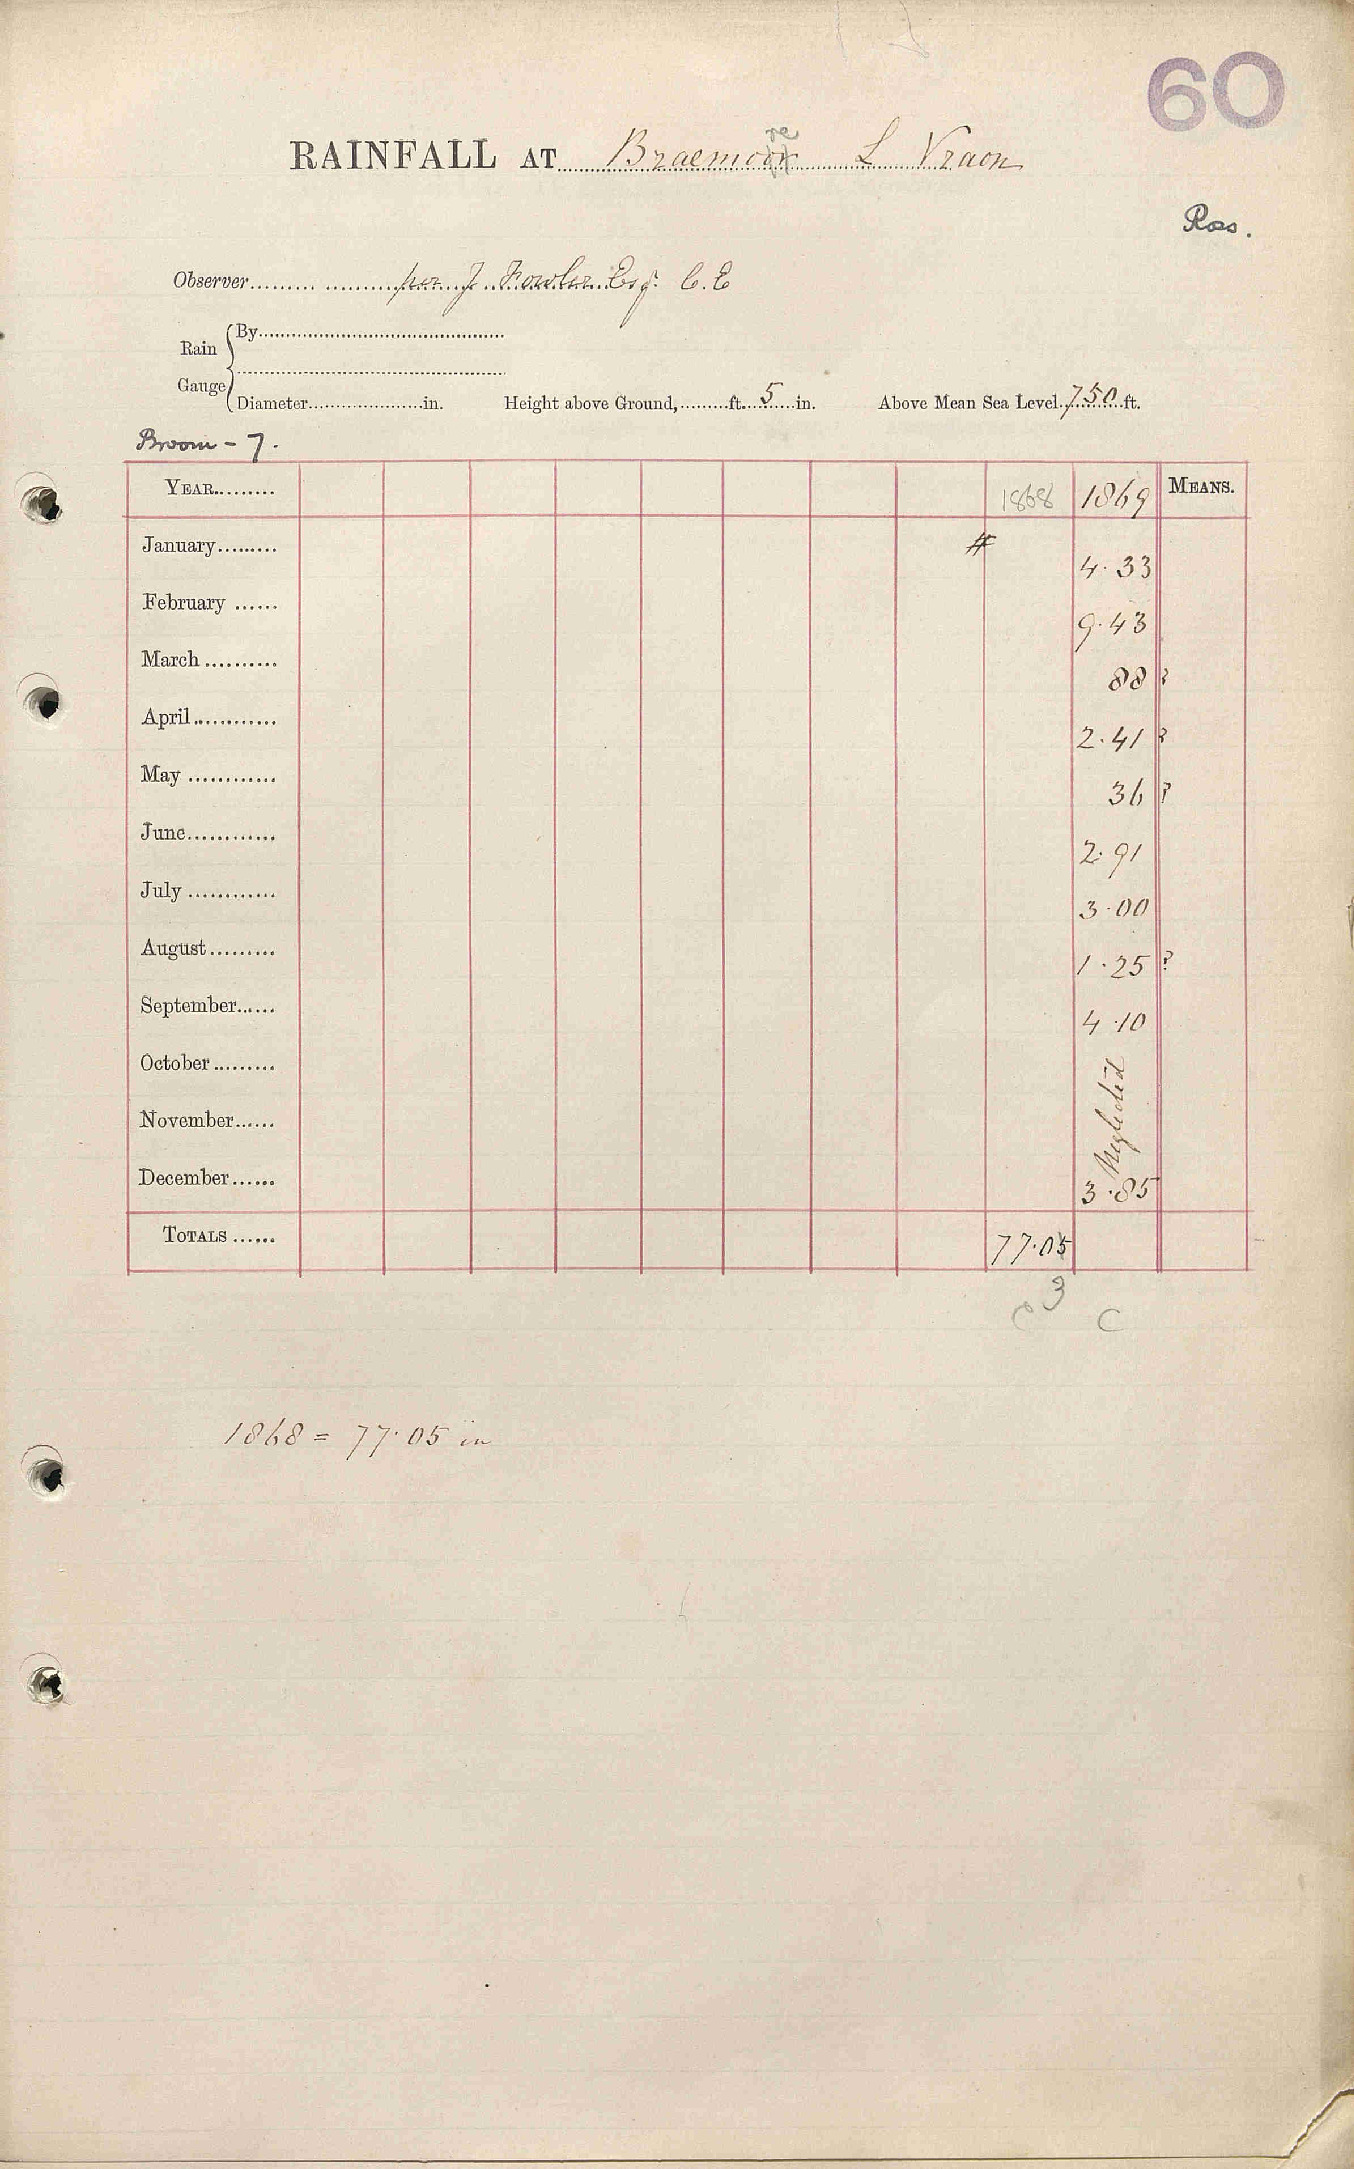 60
RAINFALL AT Braemore L Vraon
Ross.
Observer per J Fowler Esq. C.E
Rain Gauge
By
Diameter in. Height above Ground, ft. 5 in. Above Mean Sea Level 750 ft.
Broom - 7.
YEAR 1868 1869 MEANS.
January # 4.33
February 9.43
March 88 ?
April 2.41 ?
May 36 ?
June 2.91
July 3.00
August 1.25 ?
September 4.10
October Neglected
November
December 3.85
TOTALS 77.05
3
c C
1868 = 77.05 in